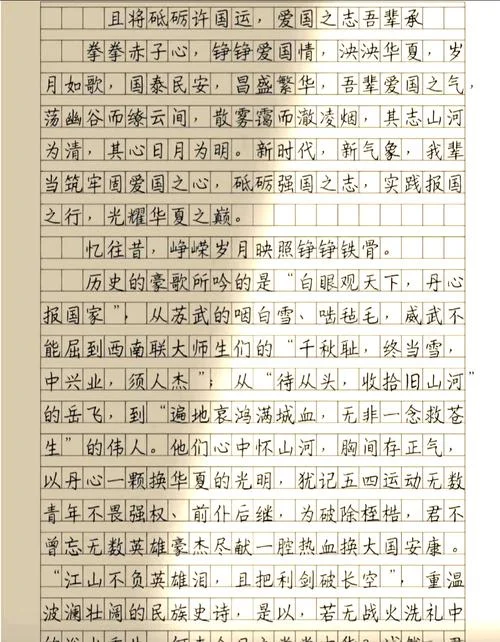 且将砥砺许国运，爱国之志吾辈承
拳拳赤子心，铮铮爱国情，泱泱华夏，岁
月如歌，国泰民安，昌盛繁华，吾辈爱国之气，
荡幽谷而缭云间，散雾霭而澈凌烟，其志山河
为清，其心日月为明。新时代，新气象，我辈
当筑牢固爱国之心，砥砺强国之志，实践报国
之行，光耀华夏之巅。
忆往昔，峥嵘岁月映照铮铮铁骨。
历史的豪歌所吟的是“白眼观天下，丹心
报国家”；从苏武的咽白雪、啮毡毛，威武不
能屈到西南联大师生们的“千秋耻，终当雪，
中兴业，须人杰”；从“待从头，收拾旧山河”
的岳飞，到“遍地哀鸿满城血，无非一念救苍
生”的伟人。他们心中怀山河，胸间存正气，
以丹心一颗换华夏的光明，犹记五四运动无数
青年不畏强权、前仆后继，为破除桎梏，君不
曾忘无数英雄豪杰尽献一腔热血换大国安康。
“江山不负英雄泪，且把利剑破长空”，重温
波澜壮阔的民族史诗，是以，若无战火洗礼中